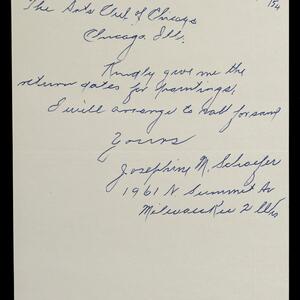 154
The Arts Club of Chicago
Chicago Ill.
Kindly give me the
return dates for paintings,
I will arrange to call for same
Yours
Josephine M. Schaefer
1961 N Summit Av
Milwaukee 2 Wis